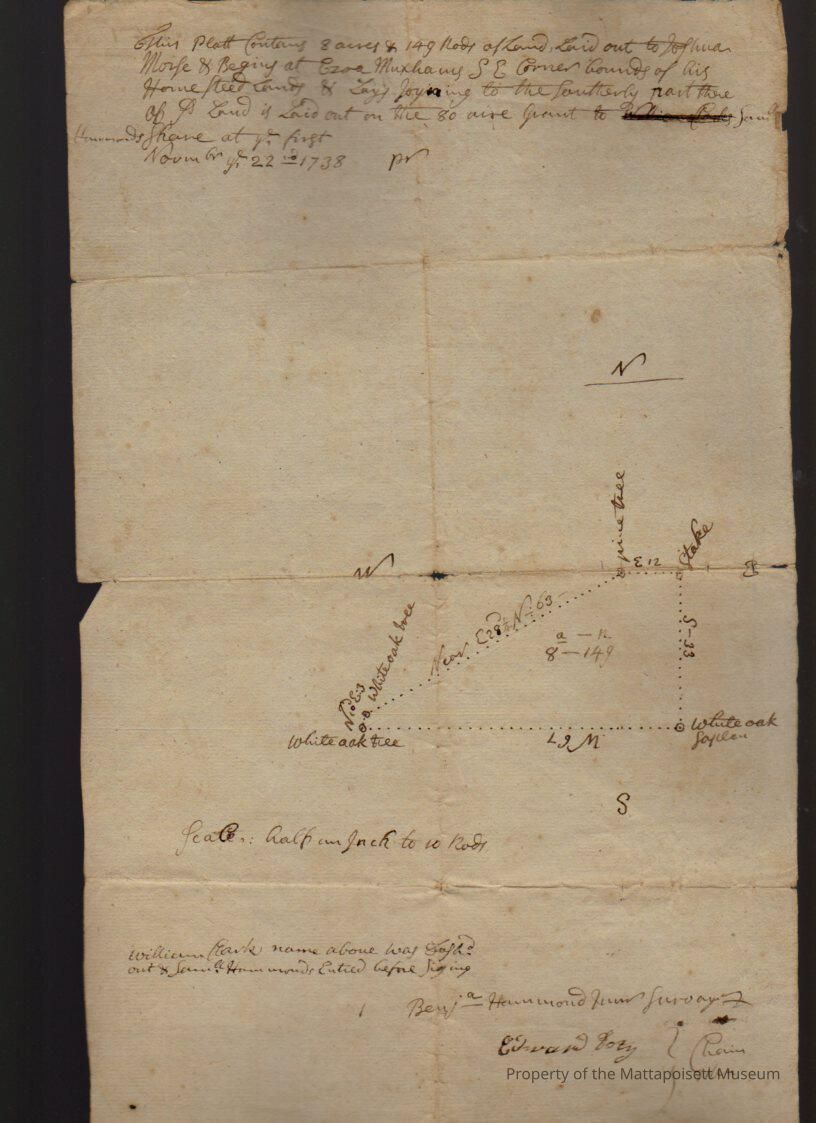 This Platt Contains 8 acres & 149 Rods of Land, Laid out to Joshua
Morse & Begins at Ezra Muxhams S E Corner bounds of his
Homesteed Lands & Lays Joyning to the Southerly part there
of ye Land is Laid out on the 80 acre Grant to William Clarks Samll
Hammonds Share at ye first
Novmbr ye 22nd 1738 pr
N
pine tree
Stake
E 12
W
E
White oak tree
Near E 28 N 63
a — r
8 — 149
S - 33
N 10 E 3
White oak tree
W 67
White oak
Saplen
S
Scale: half an Inch to 10 Rods
William Clark name above was Dasht
out & Samll Hammonds Entred before Signing
Benja Hammond Junr Survayr
Edward
Chain
Property of the Mattapoisett Museum